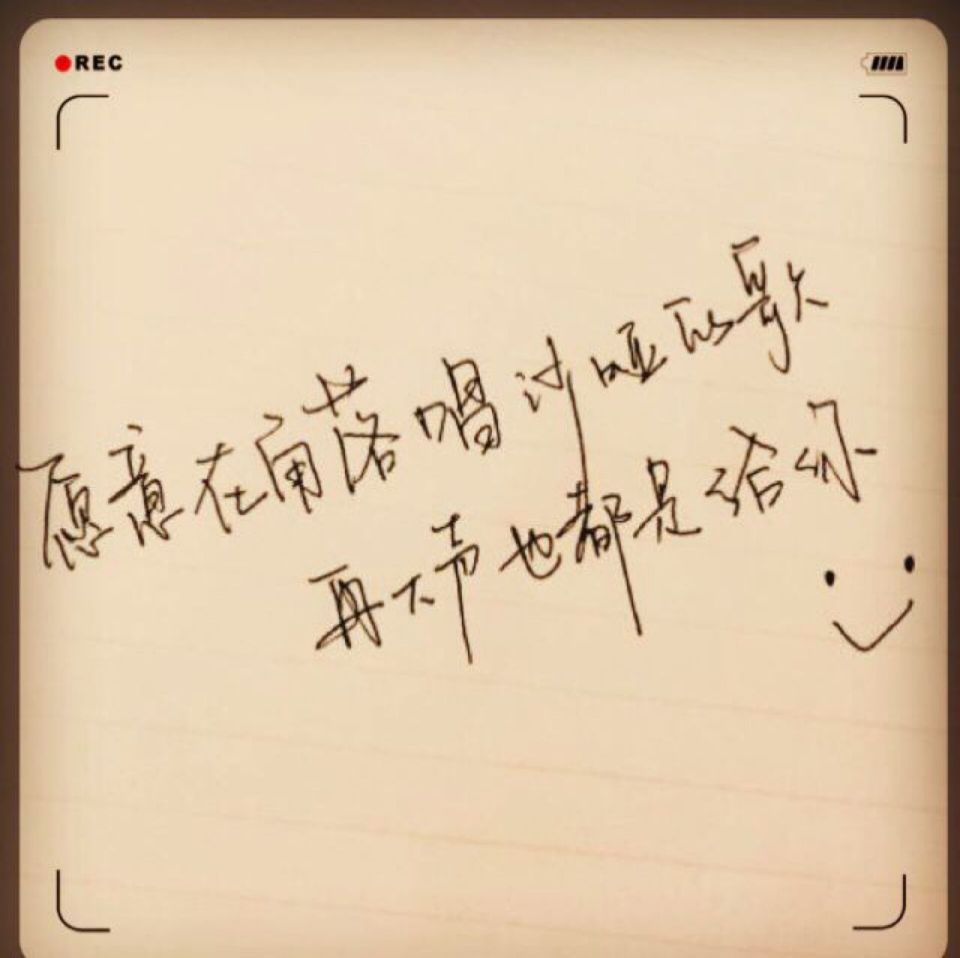 REC
愿意在角落唱沙哑的歌
再大声也都是给你